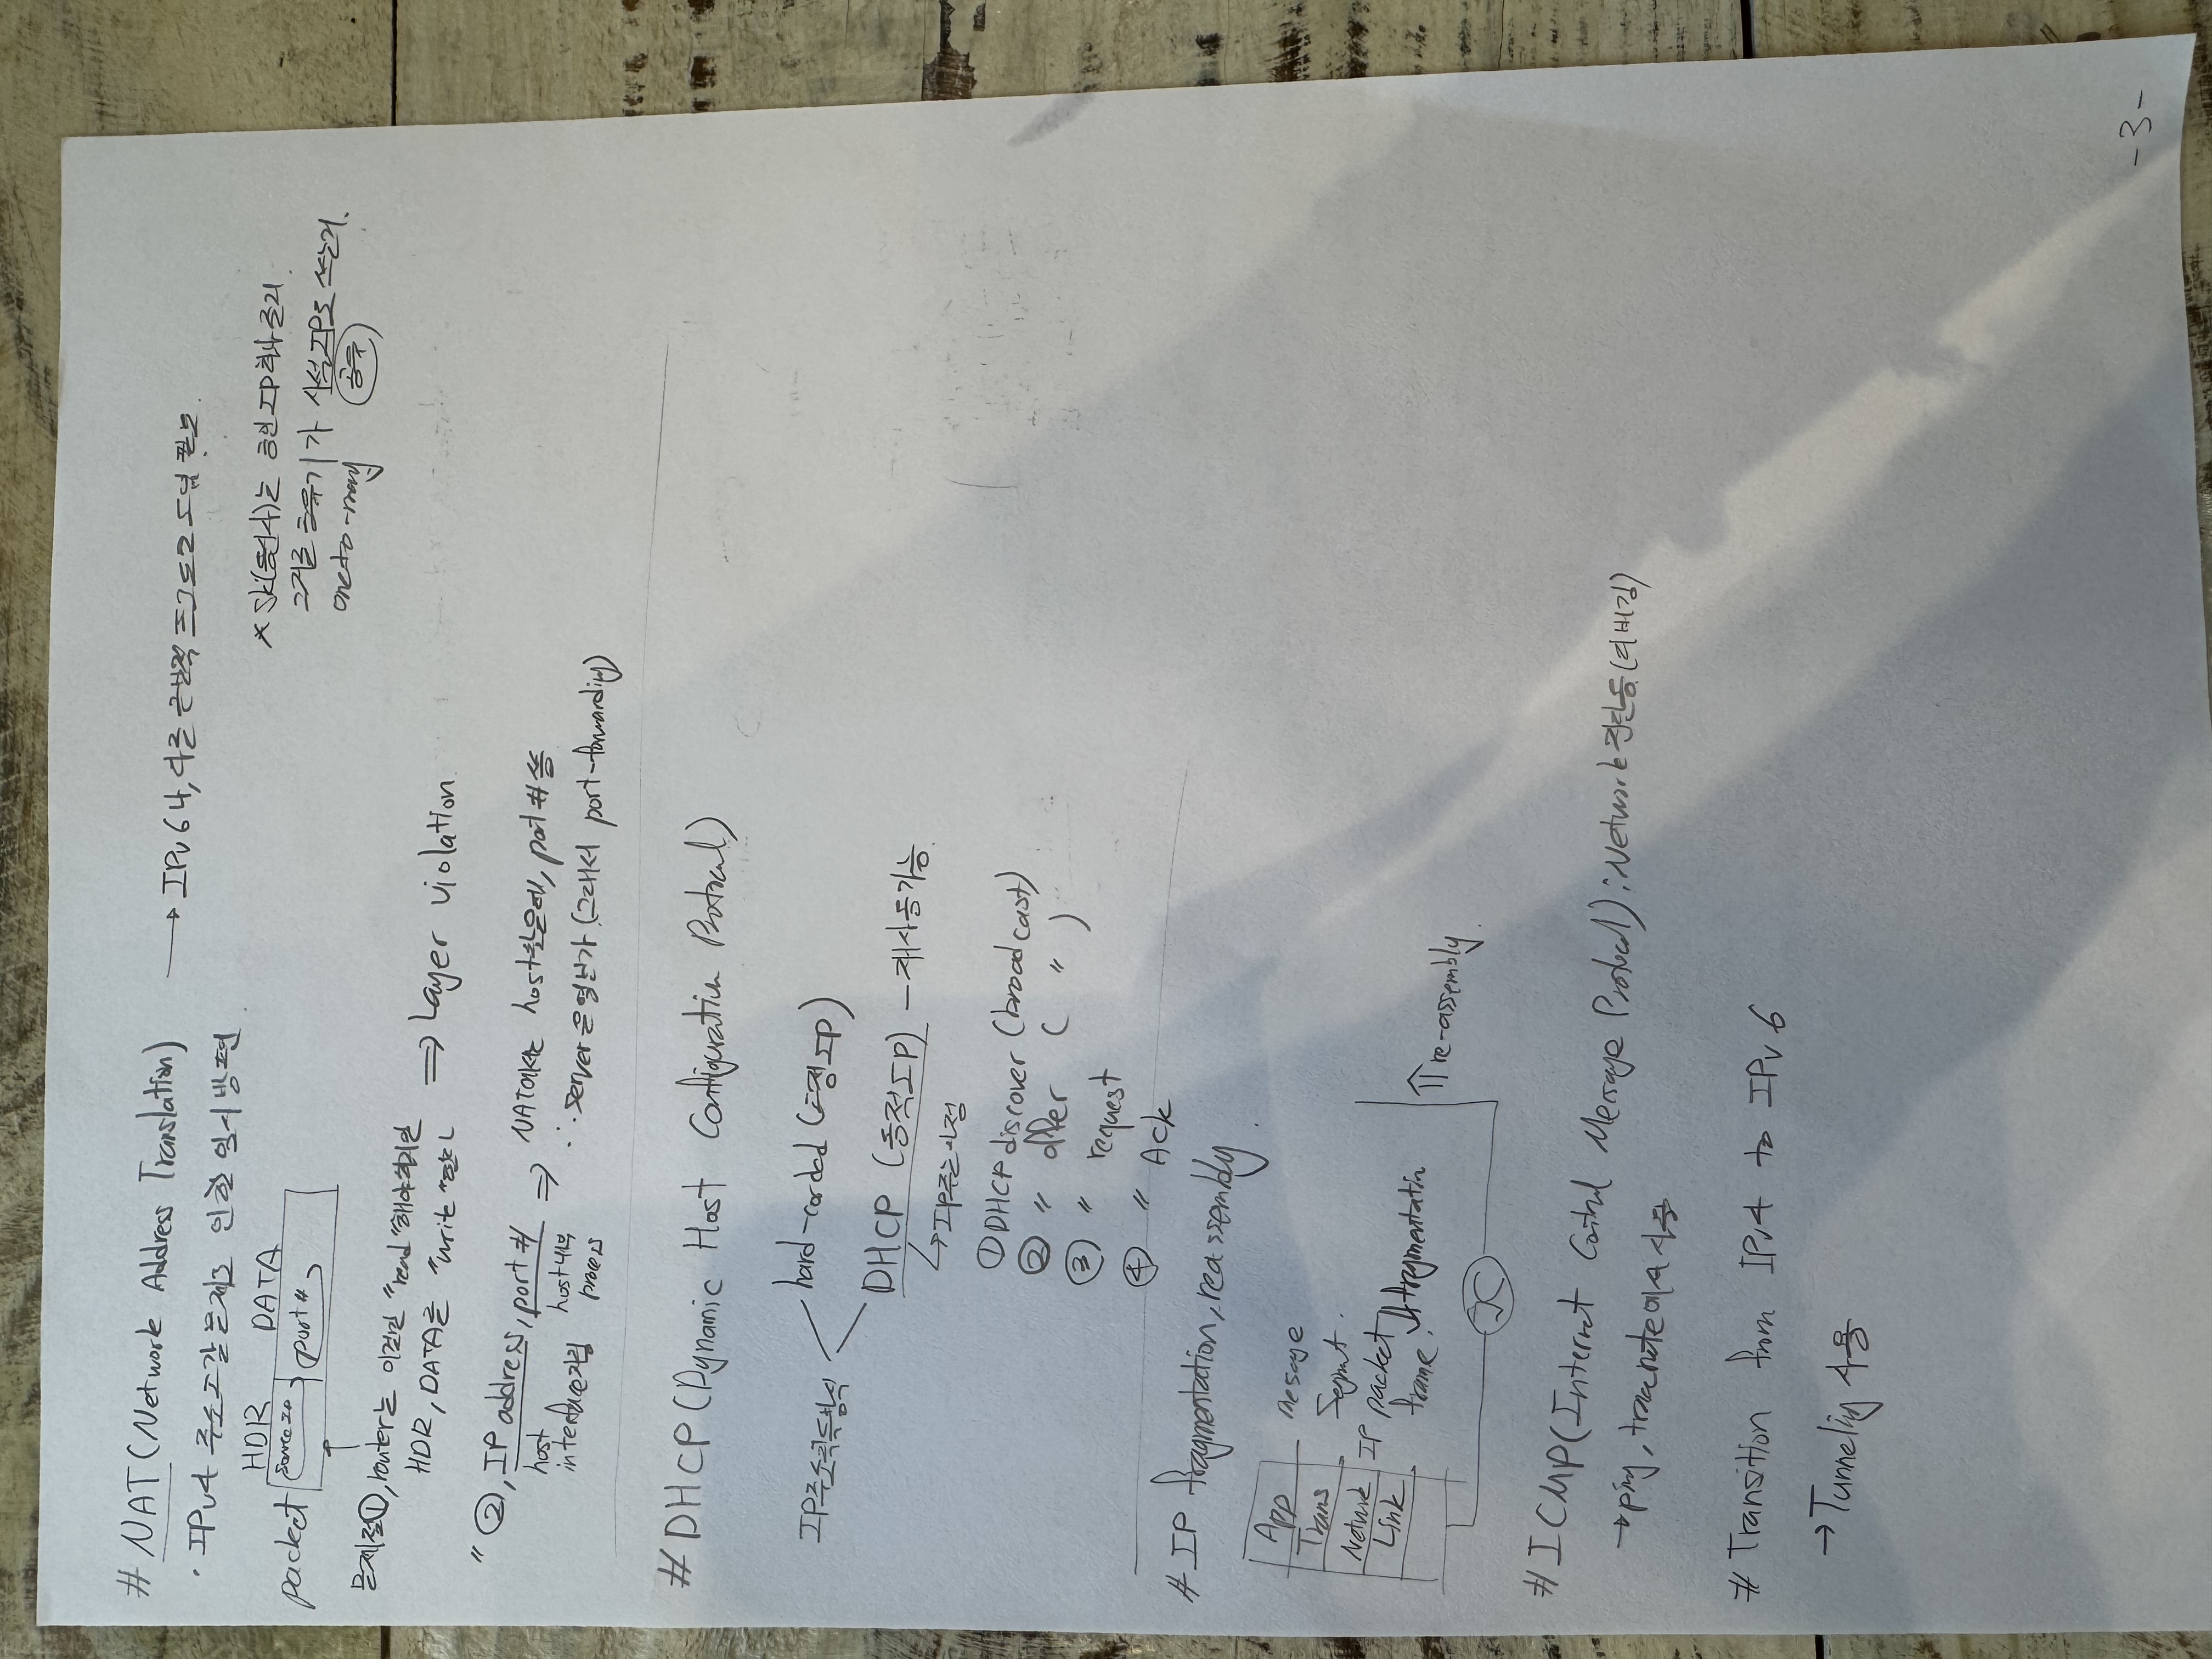 # NAT (Network Address Translation) → IPv6 나, 다른 근본적 프로토콜 도입 필요.
· IPv4 주소고갈문제로 인한 임시방편.
※ SK(통신사)는 공인 IP 하나 준거.
그거를 공유기가 사설IP로 쓰는거.
one-to-many 공유
HDR DATA
packet source IP port #
문제점 ①, router는 이것만 "read" 해야하지만
HDR, DATA를 "write" 한다 ⇒ Layer violation
" ②, IP address, port # ⇒ NAT에서는 host 찾는데, port # 씀
host interface지칭 host내부 process
∴ server 운영불가 (그래서 port-forwarding)
# DHCP (Dynamic Host Configuration Protocol)
IP주소획득방식
hard-corded (고정IP)
DHCP (동적IP) - 재사용가능.
↳ IP주는과정
① DHCP discover (broadcast)
② " offer ( " )
③ " request
④ " Ack
# IP fragmentation, reassembly.
App message
Trans Segment.
Network IP packet
Link frame.
fragmentation
⇑ re-assembly.
# ICMP (Internet Control Message Protocol) : Network 진단용 (디버깅)
→ ping, traceroute에서 사용
# Transition from IPv4 to IPv6
→ Tunneling 사용
-3-